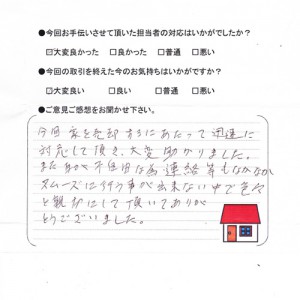 ●今回お手伝いさせて頂いた担当者の対応はいかがでしたか?
☑大変良かった □良かった □普通 □悪い
●今回の取引を終えた今のお気持ちはいかがですか?
☑大変良い □良い □普通 □悪い
●ご意見ご感想をお聞かせ下さい。
今回 家を売却するにあたって迅速に
対応して頂き、大変助かりました。
また 私が不住田な為 連絡等もなかなか
スムーズに行う事が出来ない中で色々
と親切にして頂いてありが
とうございました。